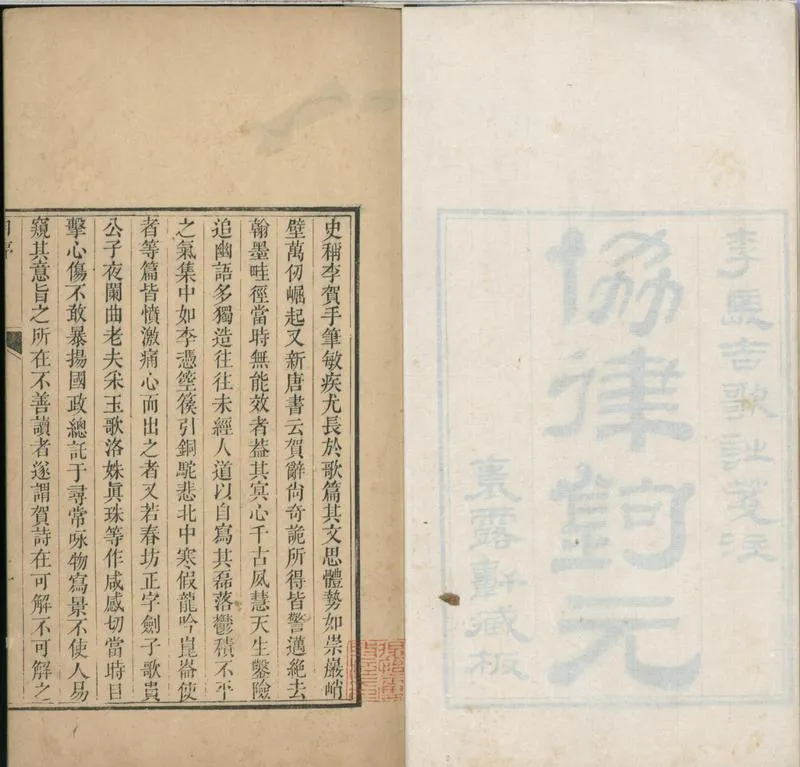 李長吉歌詩箋注
協律鉤元
裛露軒藏板
史稱李賀手筆敏疾尤長於歌篇其文思體勢如崇巖峭
壁萬仞崛起又新唐書云賀辭尙奇詭所得皆警邁絶去
翰墨畦徑當時無能效者葢其冥心千古夙慧天生鑿險
追幽語多獨造往往未經人道以自寫其磊落鬱積不平
之氣集中如李憑箜篌引銅駝悲北中寒假龍吟崑崙使
者等篇皆憤激痛心而出之者又若春坊正字劍子歌貴
公子夜闌曲老夫釆玉歌洛姝眞珠等作咸感切當時目
擊心傷不敢暴揚國政總託于尋常咏物寫景不使人易
窺其意旨之所在不善讀者遂謂賀詩在可解不可解之